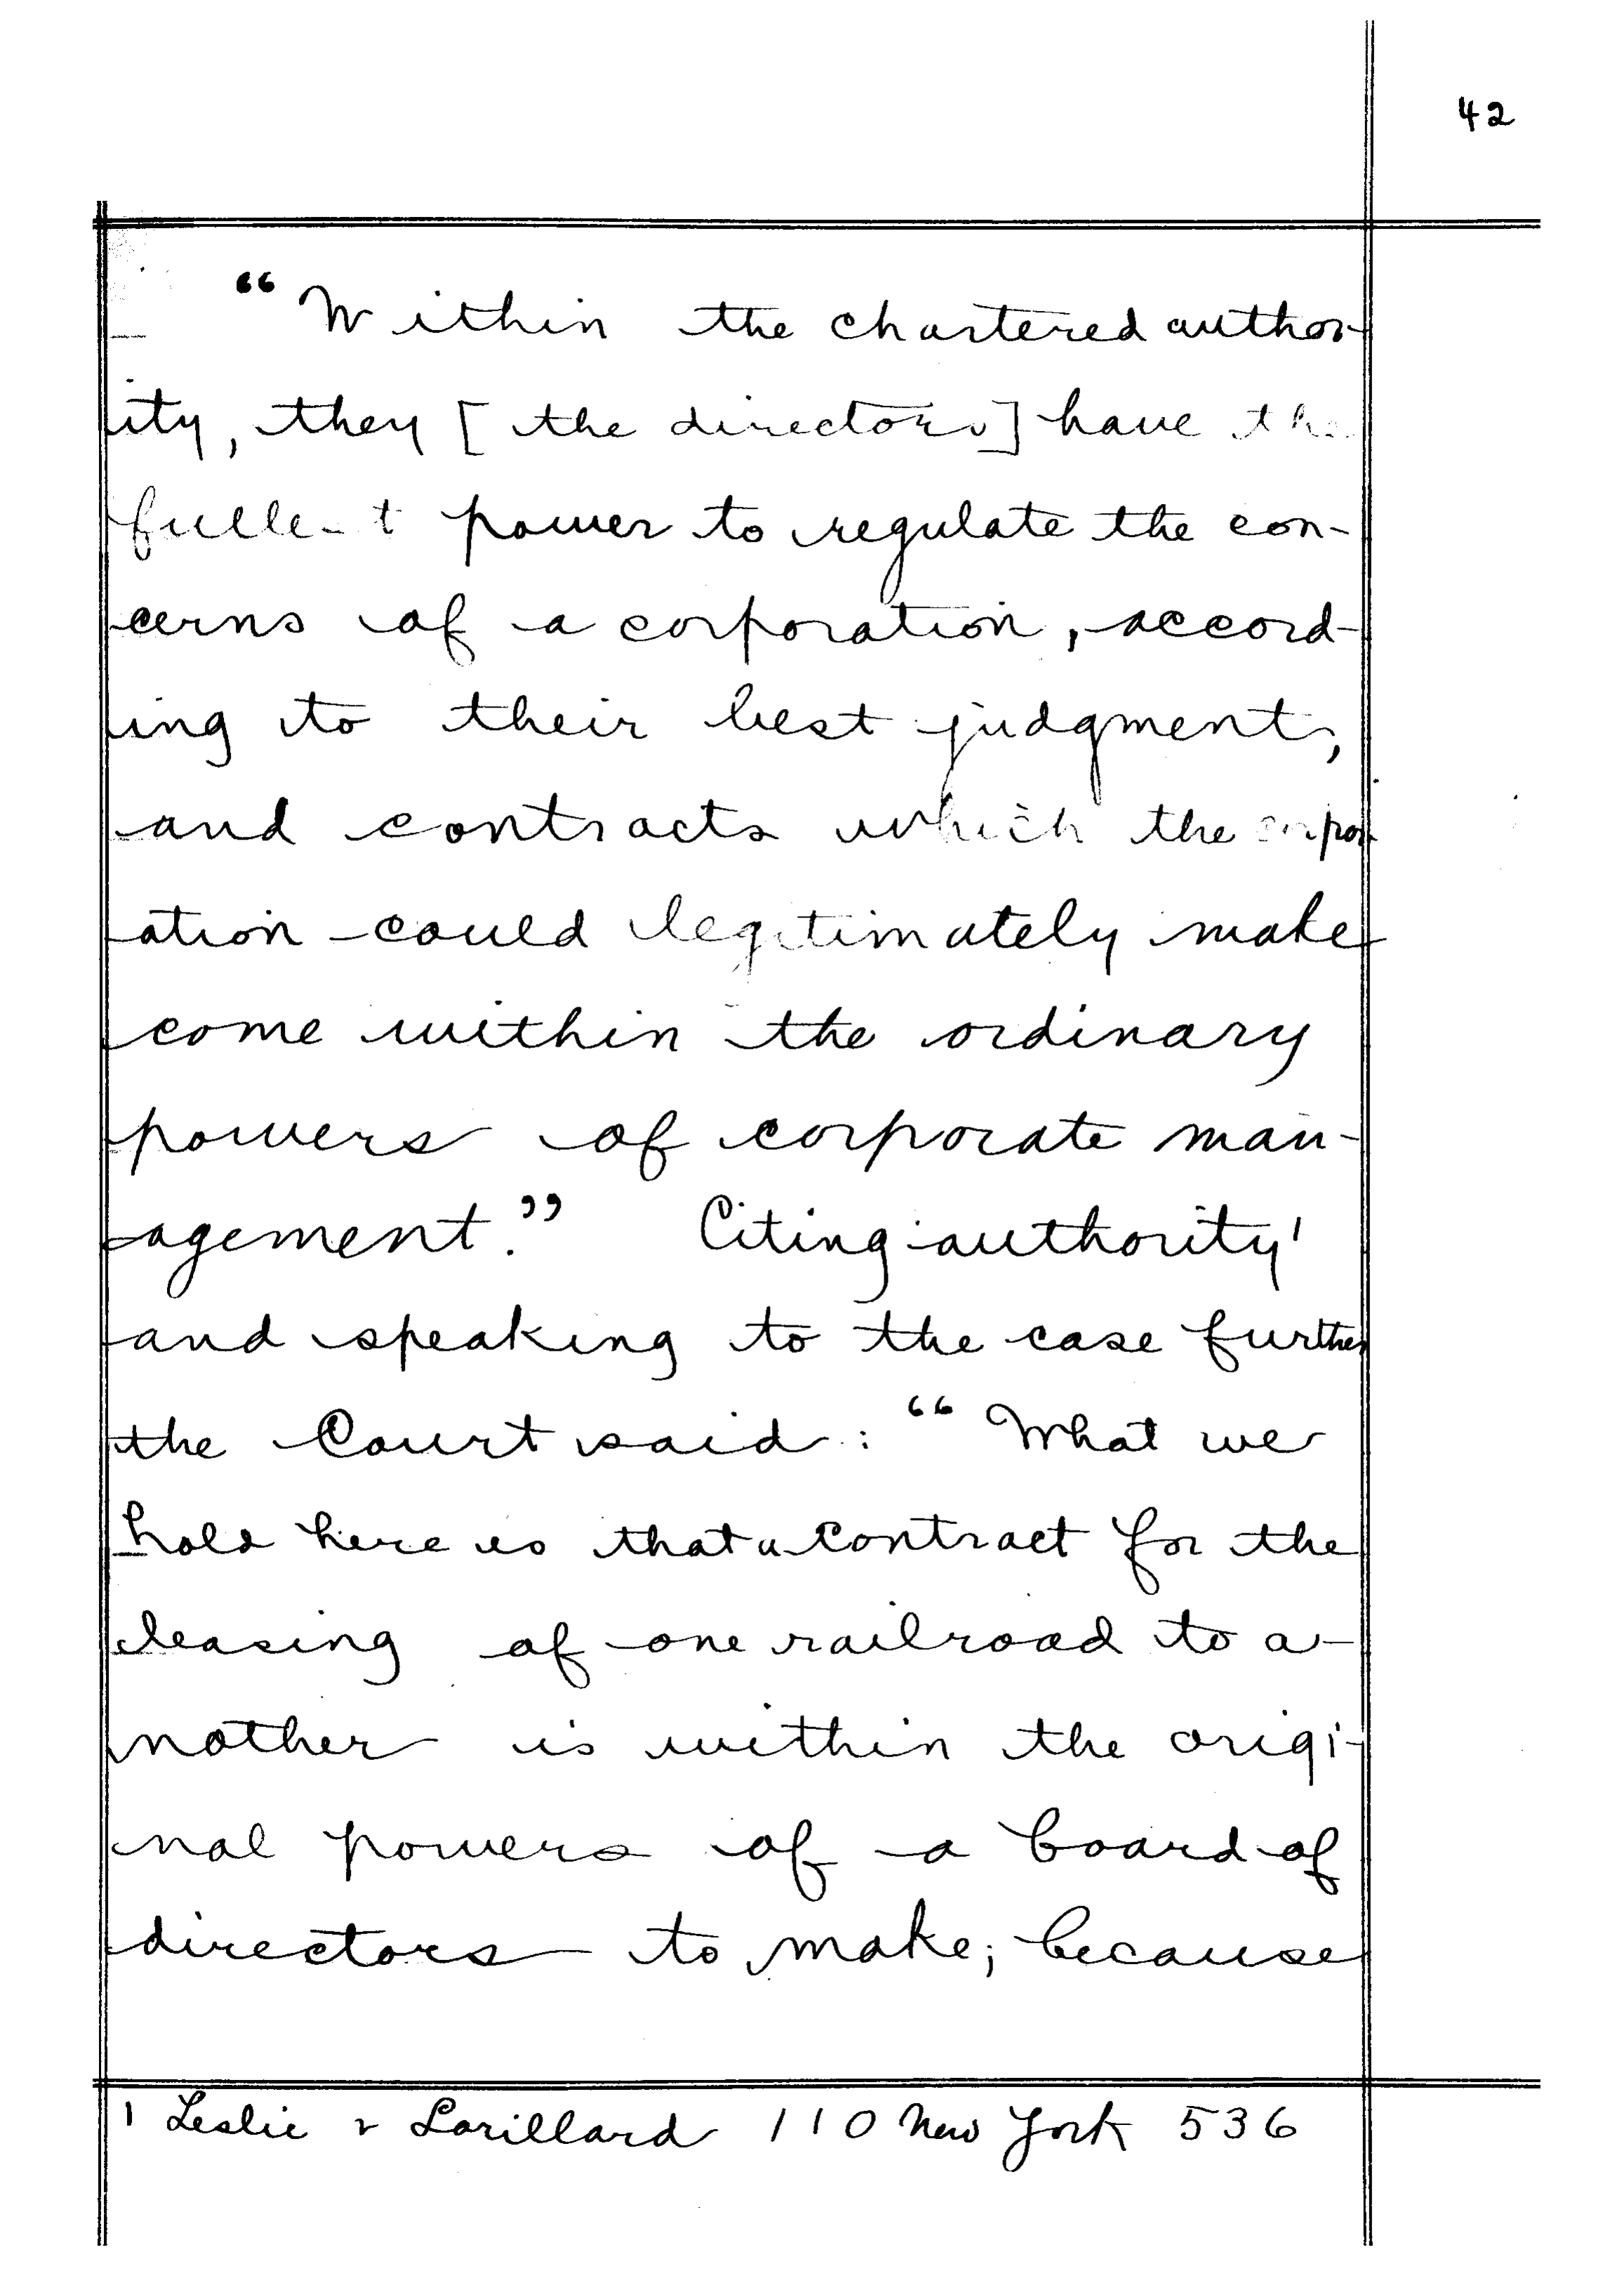 42
“Within the chartered author-
ity, they [the directors] have the
fullest power to regulate the con-
cerns of a corporation, accord-
ing to their best judgment,
and contracts which the corpor
ation could legitimately make
come within the ordinary
powers of corporate man-
agement.” Citing authority¹
and speaking to the case further
the Court said: “What we
hold here is that a contract for the
leasing of one railroad to a-
nother is within the origi-
nal powers of a board of
directors to make; because
1 Leslie v Lorillard 110 New York 536